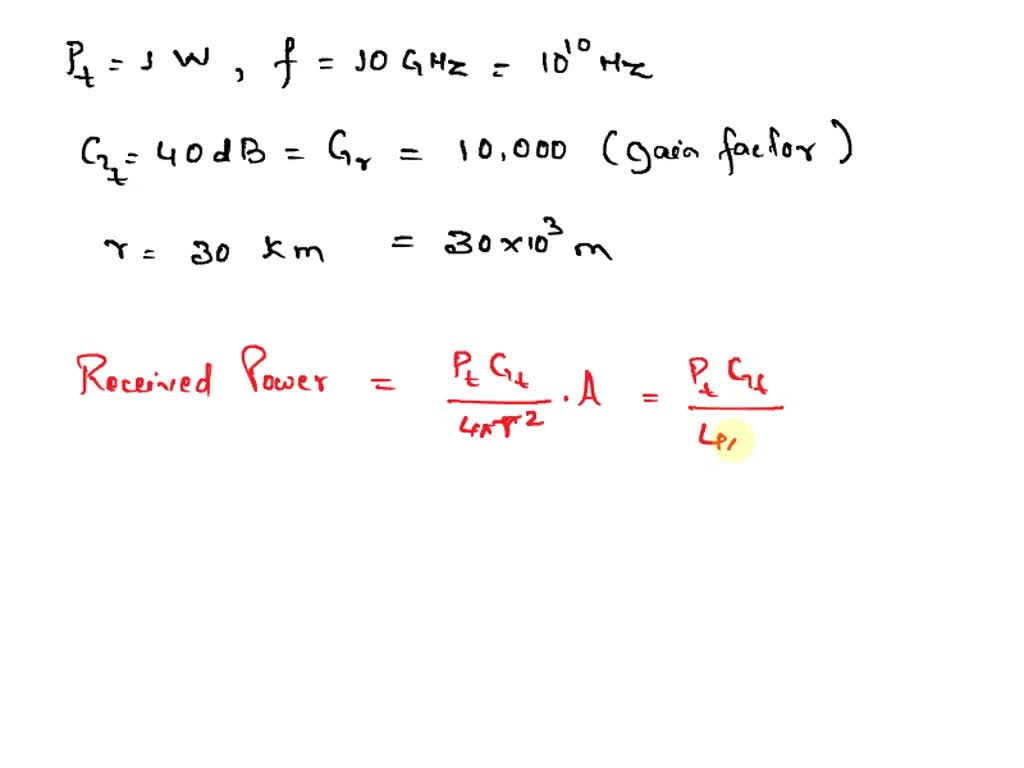 P_t = 1 W , f = 10 GHz = 10^10 Hz
G_t = 40 dB = G_r = 10,000 (gain factor)
r = 30 km = 30×10^3 m
Received Power = P_t G_t / 4πr^2 . A = P_t G_t / 4π